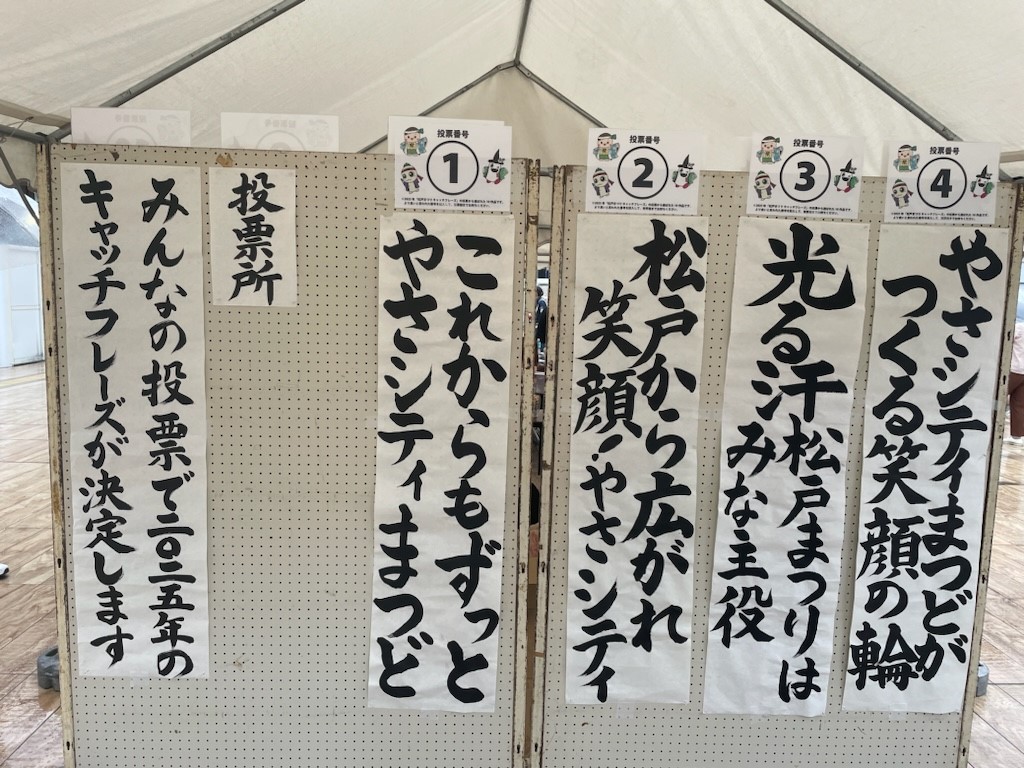 みんなの投票で二〇二五年の
キャッチフレーズが決定します
投票所
投票番号
1
これからもずっと
やさシティまつど
投票番号
2
松戸から広がれ
笑顔!やさシティ
投票番号
3
光る汗松戸まつりは
みな主役
投票番号
4
やさシティまつどが
つくる笑顔の輪